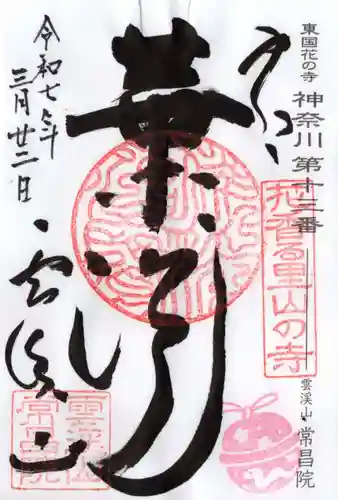 東国花の寺 神奈川 第十三番
花香る里山の寺
雲渓山 常昌院
華
令和七年
三月廿二日
雲渓山
常昌院